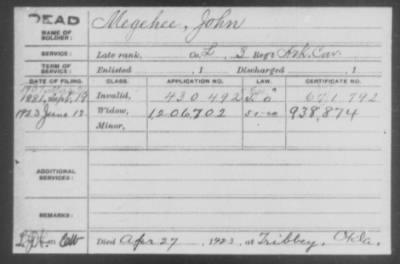 DEAD
NAME OF SOLDIER: Megehee, John
SERVICE: Late rank, Co. L, 3 Reg't Ark. Cav.
TERM OF SERVICE: Enlisted , 1 Discharged , 1
DATE OF FILING. CLASS. APPLICATION NO. LAW. CERTIFICATE NO.
Sept. 19 Invalid, 430 492 671 792
1923 June 12 Widow, 1206702 5-1-20 938,874
Minor,
ADDITIONAL SERVICES:
REMARKS:
Died Apr 27, 1923, at Tribbey, Okla.